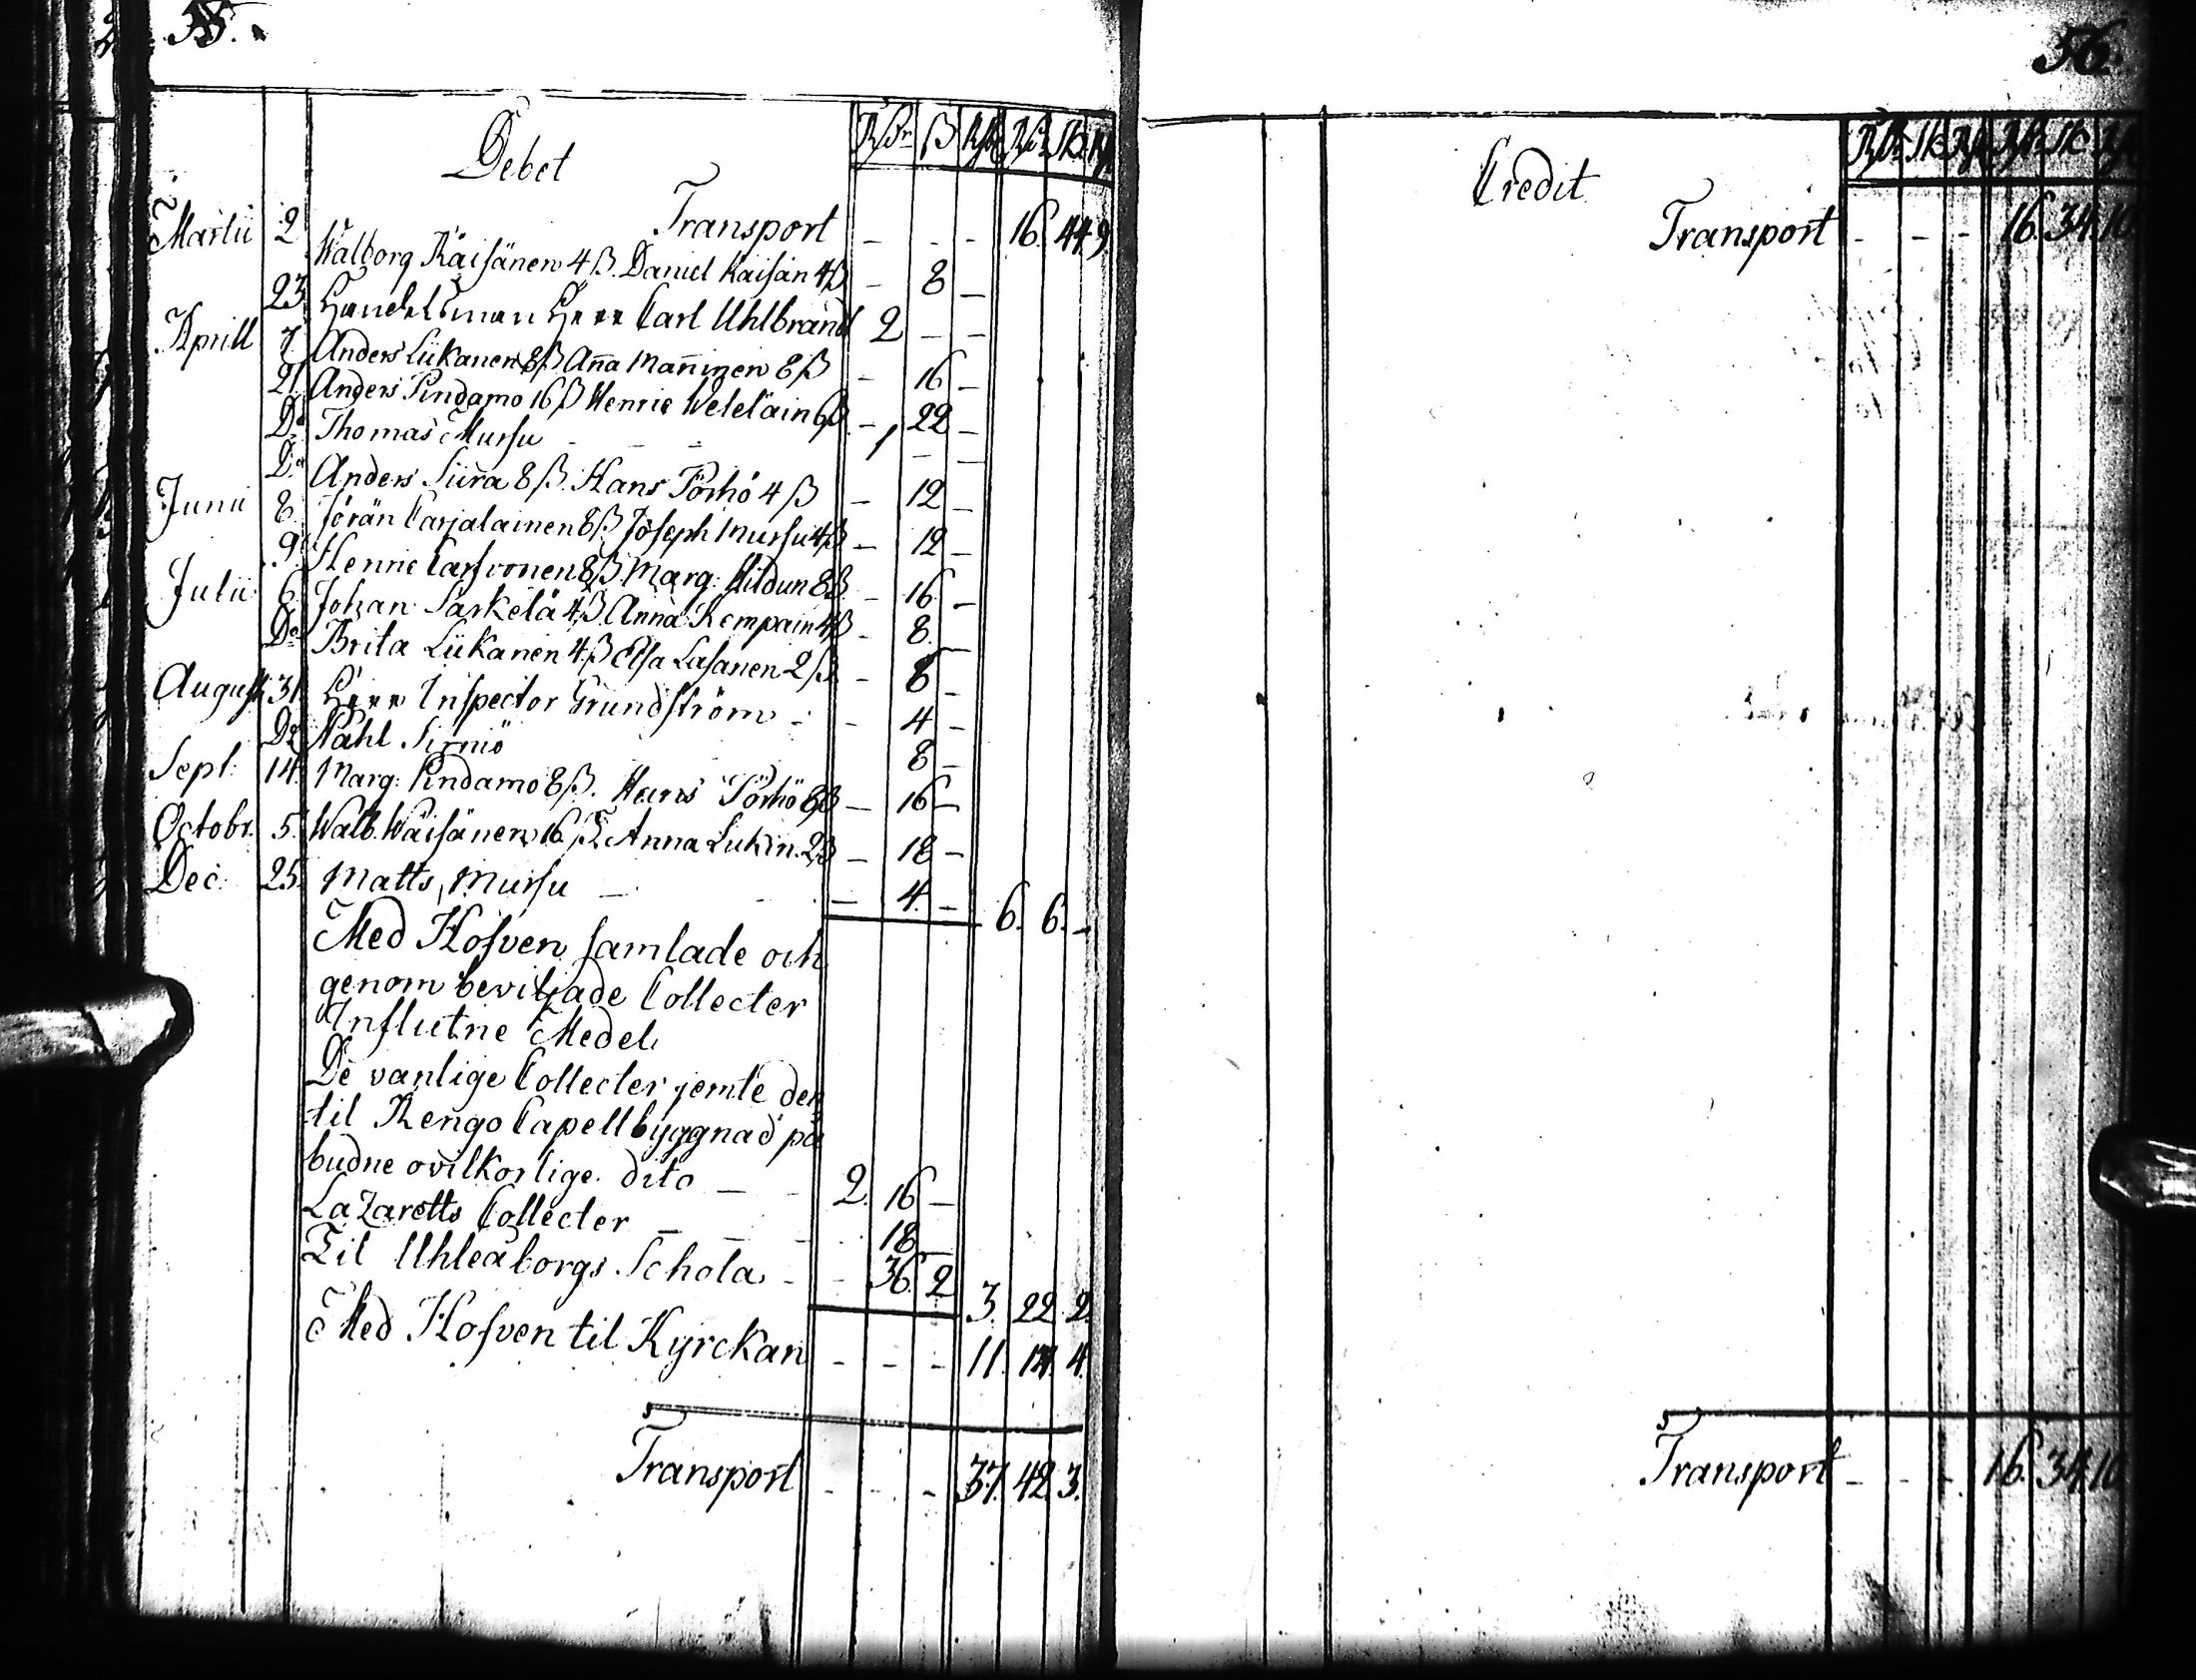 55.
Debet Rdr ß Rst Rdr Sk Rst
Transport - - - 16. 44. 9.
Martii 2 Walborg Räisänen 4 ß. Daniel Kaisän 4 ß - 8 -
23 Handelsman Herr Carl Uhlbrand 2 - -
Aprill 7 Anders Liikanen 8 ß Anna Manninen 8 ß - 16 -
21 Anders Pindamo 16 ß Henric Weteläin 6 ß - 22 -
Do Thomas Mursu - - 1 - -
Do Anders Siira 8 ß. Hans Pörhö 4 ß - 12 -
Junii 8. Jörän Carjalainen 8 ß Joseph Mursu 4 ß - 12 -
9 Henric Carsvonen 8 ß. Marg: Hildun 8 ß - 16 -
Julii 6 Johan Särkelä 4 ß. Anna Kempain 4 ß - 8.
Do Brita Liikanen 4. ß Elsa Lasanen 2 ß - 6 -
August 31. Herr Inspector Grundström - - 4 -
Do Påhl Sirniö 8 -
Sept: 14. Marg: Pindamo 8 ß. Hans Pörhö 8 ß - 16 -
Octobr. 5. Walb. Wäisänen 16 ß Anna Lukin. 2 ß - 18 -
Dec: 25. Matts Mursu - - 4. - 6. 6. -
Med Hofven samlade och
genom beviljade Collecter
Influtne Medel
De vanlige Collecter jemte den
til Rengo Capellbyggnad på
budne ovilkorlige dito - 2. 16 -
Lazaretts Collecter - - 18 -
Til Uhleåborgs Schola - - 36 2 3. 22. 2.
Med Hofven til Kyrckan - - - 11. 14. 4.
Transport - - - 37. 42. 3.
56.
Credit Rdr Sk Rst Rdr Sk Rst
Transport - - - 16. 34. 10
Transport - - - 16. 34. 10